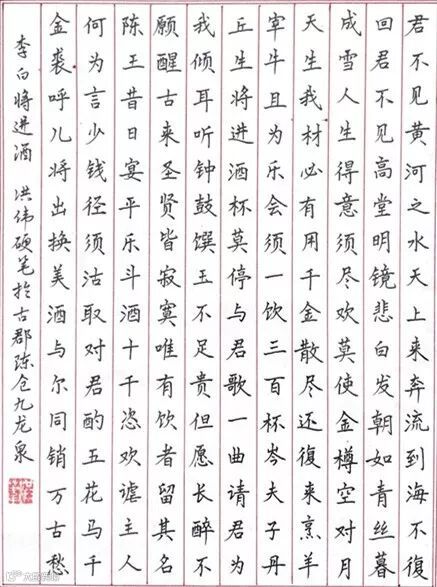 君不见黄河之水天上来奔流到海不復
回君不见高堂明镜悲白发朝如青丝暮
成雪人生得意须尽欢莫使金樽空对月
天生我材必有用千金散尽还復来烹羊
宰牛且为乐会须一饮三百杯岑夫子丹
丘生将进酒杯莫停与君歌一曲请君为
我倾耳听钟鼓馔玉不足贵但愿长醉不
願醒古来圣贤皆寂寞唯有饮者留其名
陈王昔日宴平乐斗酒十千恣欢谑主人
何为言少钱径须沽取对君酌五花马千
金裘呼儿将出换美酒与尔同销万古愁
李白将进酒 洪伟硬笔於古郡陈仓九龙泉